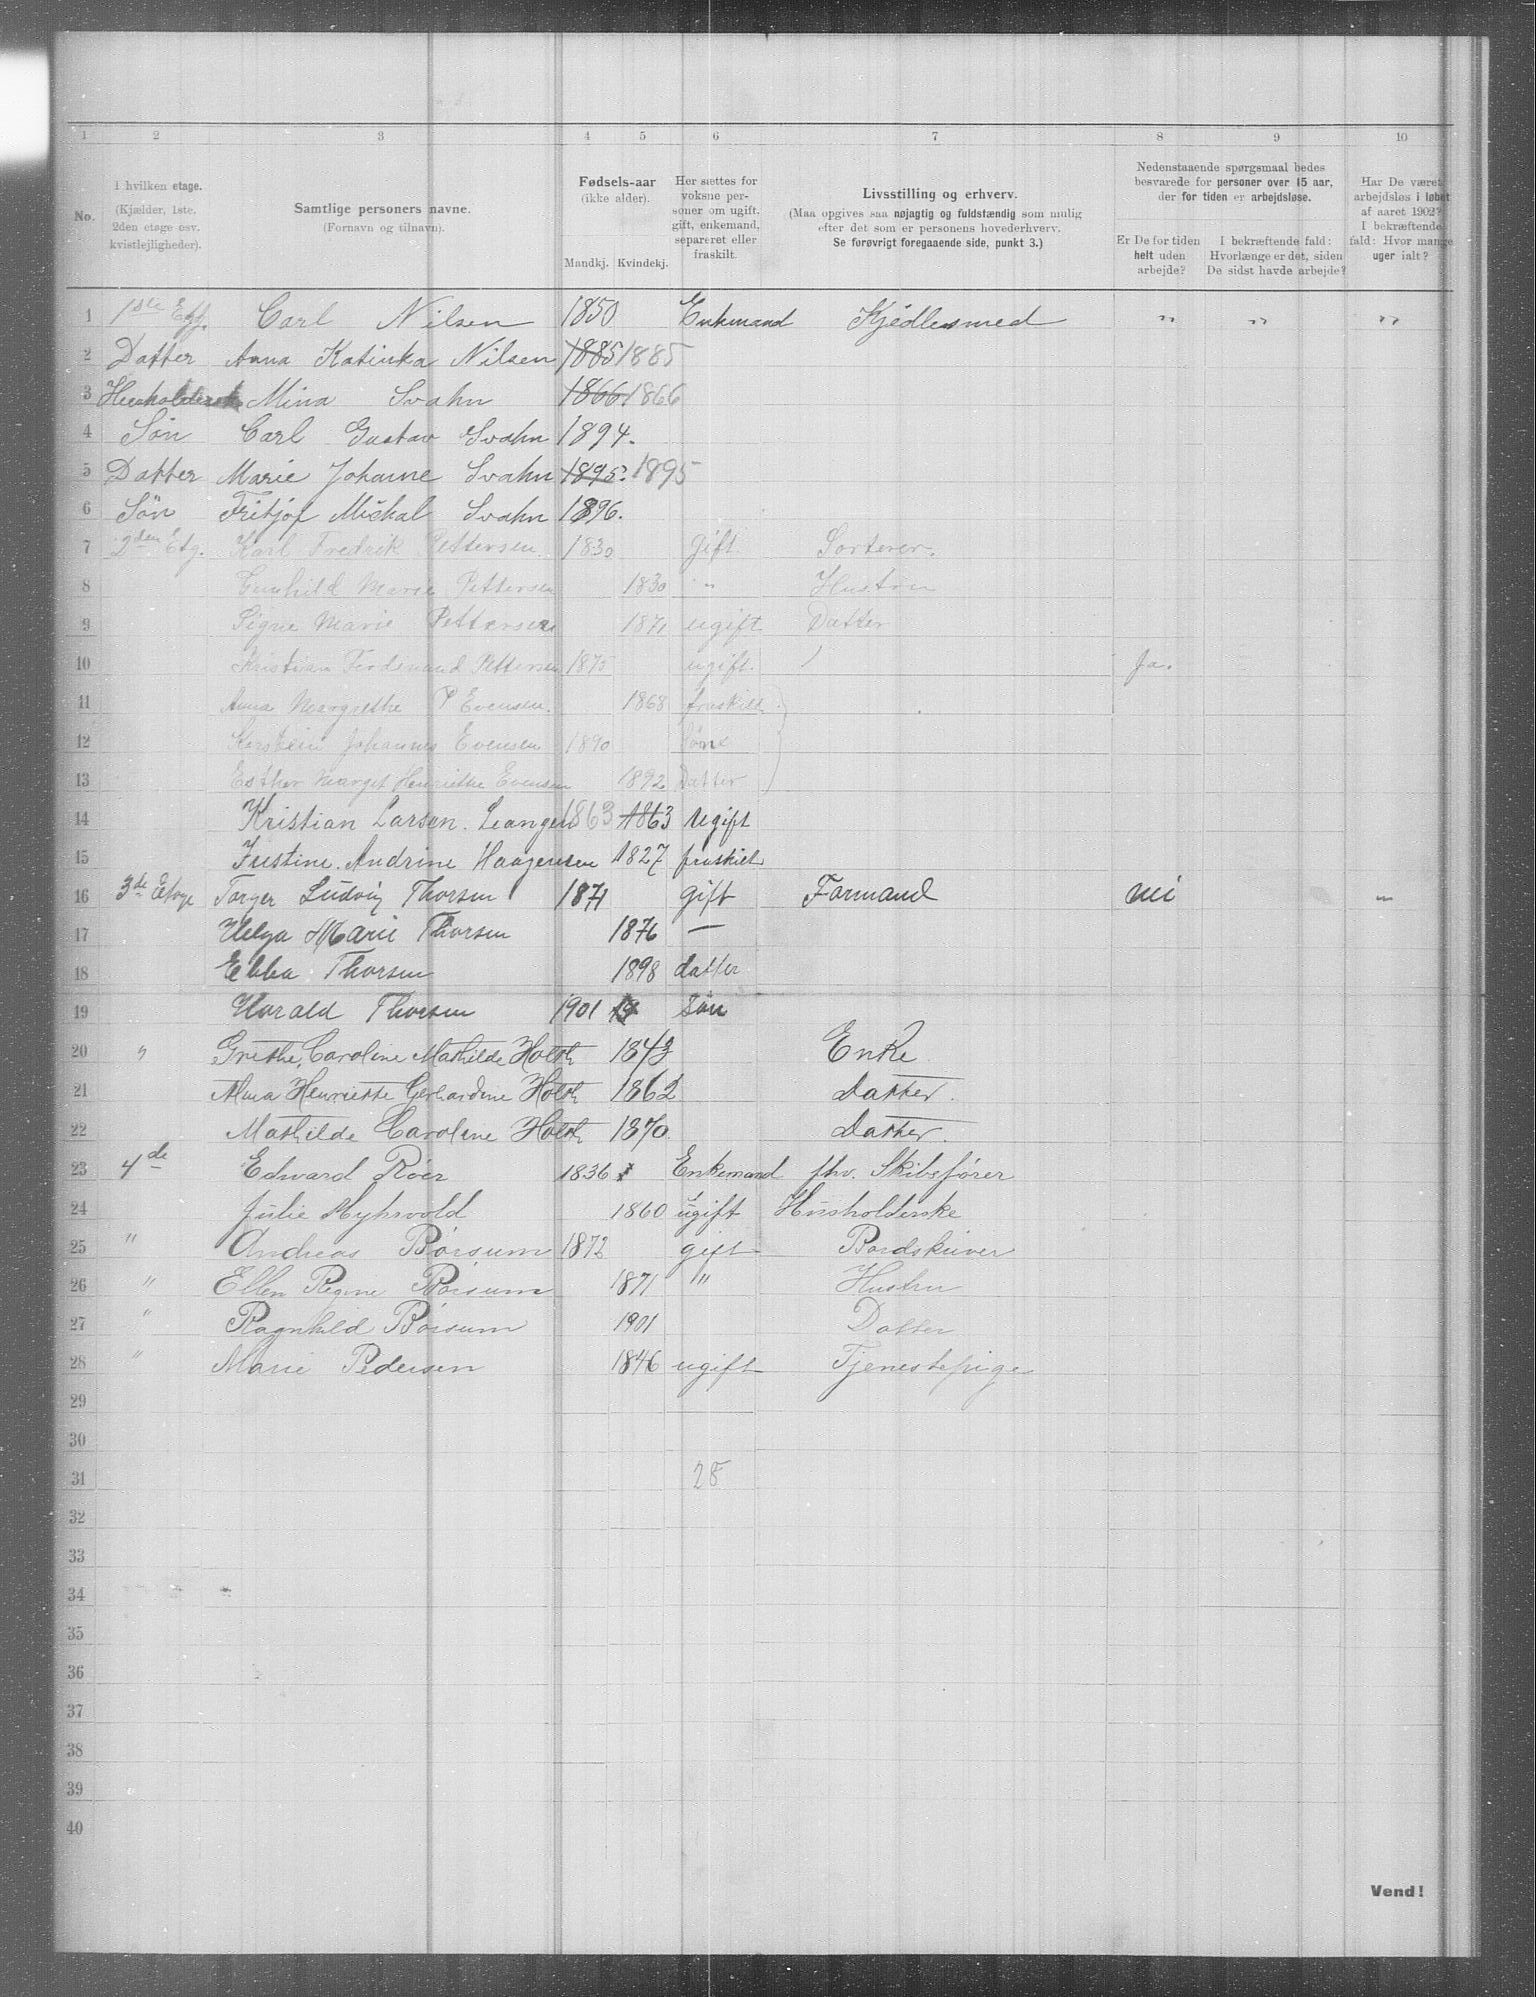 1 2 3 4 5 6 7 8 9 10
No.
I hvilken etage.
(Kjælder, 1ste,
2den etage osv.
kvistlejligheder).
Samtlige personers navne.
(Fornavn og tilnavn).
Fødsels-aar
(ikke alder).
Mandkj. Kvindekj.
Her sættes for
voksne per-
soner om ugift,
gift, enkemand,
separeret eller
fraskilt.
Livsstilling og erhverv.
(Maa opgives saa nøjagtig og fuldstændig som mulig
efter det som er personens hovederhverv.
Se forøvrigt foregaaende side, punkt 3.)
Nedenstaaende spørgsmaal bedes
besvarede for personer over 15 aar,
der for tiden er arbejdsløse.
Er De for tiden
helt uden
arbejde?
I bekræftende fald:
Hvorlænge er det, siden
De sidst havde arbejde?
Har De været
arbejdsløs i løbet
af aaret 1902?
I bekræftende
fald: Hvor mange
uger ialt?
1 1ste Etg. Carl Nilsen 1850 Enkemand Kjedlesmed " " "
2 Datter Anna Katinka Nilsen 1885 1885
3 Mina Svahn 1866 1866
4 Søn Carl Gustav Svahn 1894.
5 Datter Marie Johanne Svahn 1895. 1895
6 Søn Fritjof Mickal Svahn 1896.
7 2den Etg. Karl Fredrik Pettersen 1830 gift Sorterer.
8 Gunhild Marie Pettersen 1830 " Hustru
9 Signe Marie Pettersen 1871 ugift Datter
10 Kristian Ferdinand Pettersen 1875 ugift. Ja.
11 Anna Margrethe P Evensen. 1868 fraskilt
12 Johannes Evensen 1890 Sønn
13 Esther Marget Henriette Evensen 1892 Datter
14 Kristian Larsen. Leangen 1863 1863 Ugift
15 Justine. Andrine Haagensen 1827 fraskilt
16 3de Etage Torger Ludvig Thorsen 1871 gift Formand nei "
17 Helga Marie Thorsen 1876 —
18 Ebba Thorsen 1898 datter
19 Harald Thorsen 1901 søn
20 " Grethe, Caroline Mathilde Holst 1843 Enke
21 Alma Henriette Gerhardine Holst 1862 Datter.
22 Mathilde Caroline Holst 1870 Datter.
23 4de Edvard Röer 1836 Enkemand fhv. Skibsfører
24 Julie Myhrvold 1860 ugift Husholderske
25 " Andreas Børsum 1872 gift Bordskriver
26 " Ellen Regine Børsum 1871 " Hustru
27 " Ragnhild Børsum 1901 Datter
28 " Marie Pedersen 1846 ugift Tjenestepige
29
30
31 28
32
33
34
35
36
37
38
39
40
Vend!